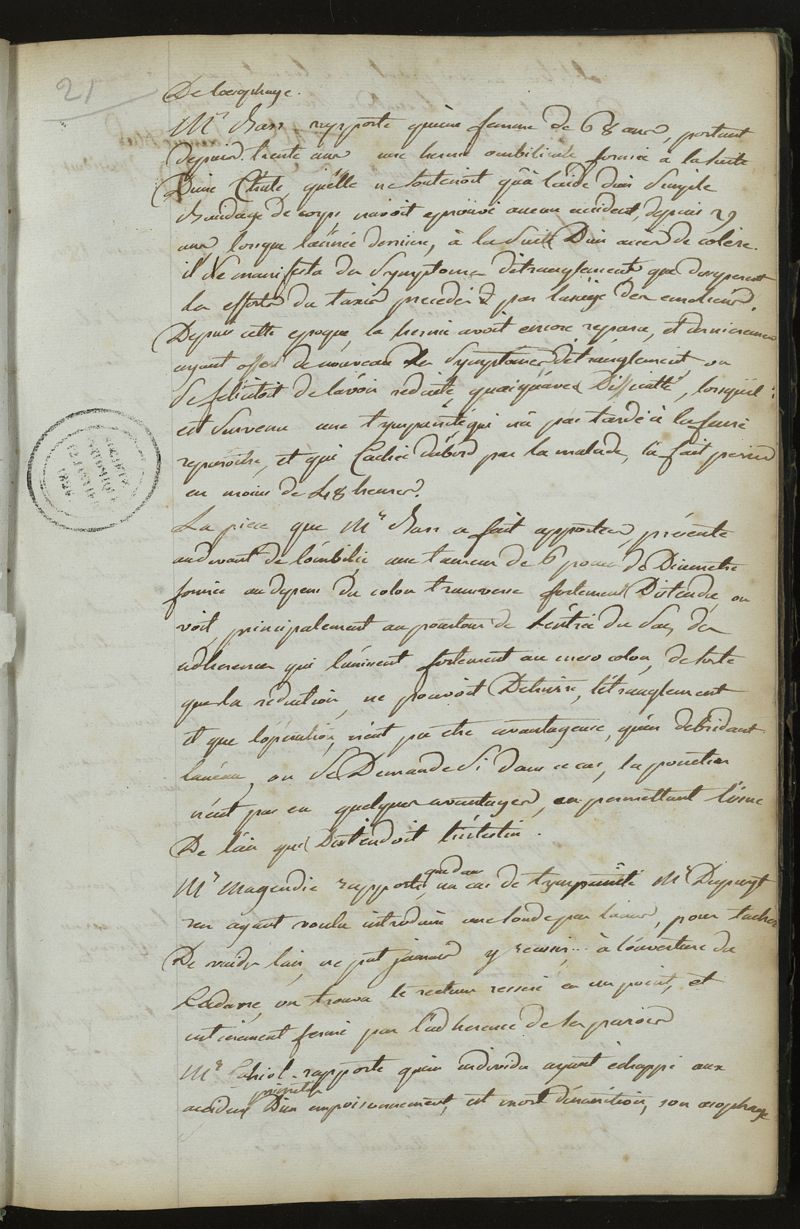 21
De l'œsophage.
Mr rapporte qu'une femme de 68 ans, portant
depuis trente ans une hernie ombilicale formée à la suite
D'une Chute qu'elle ne soutenoit qu'à l'aide d'un Simple
Bandage de corps n'avoit eprouvé aucun accident, depuis 29
ans lorsque l'année derniere, à la Suite D'un accès de colère.
il Se manifesta des Symptomes d'etranglement que dissiperent
les efforts du taxis precedés par l'usage des emoliens.
Depuis cette epoque, la hernie avoit encore reparu, et dernierement
ayant offert de nouveau des Symptomes d'étranglement, on
Se felicitoit de l'avoir reduite quoiqu'avec Difficulté, lorsqu'il
est Survenu une tympanite qui n'a pas tardé à la faire
reparoitre, et qui Cachée d'abord par la malade, l'a fait perir
en moins de 48 heures.
La piece que Mr a fait apporter, présente
au devant de l'ombilic une tumeur de 6 pouces de Diametre
formée au depens du colon transverse fortement Distendu, on
voit, principalement au pourtour de l'entrée du Sac, des
adherences qui l'unissent fortement au meso colon, de sorte
que la réduction, ne pouvoit Detruire, l'étranglement
et que l'opération, n'eut pu etre avantageuse, qu'en debridant
l'anneau, on Se Demande Si dans ce cas, la ponction
n'eut pas eu quelques avantages, en permettant l'issue
De l'air qui Distendoit l'intestin.
Mr Magendie rapporte que dans un cas de tympanite Mr Dupuyt
ren ayant voulu introduire une sonde par l'anus, pour tacher
De vuider l'air, ne put jamais y reussir... à l'ouverture du
Cadavre, on trouva le rectum resseré en un point, et
entierement fermé par l'adherence de ses parois
Mr rapporte qu'un individu ayant échappé aux
accidens primitifs D'un empoisonnement, est mort d'inanition, son œsophage
SOCIÉTÉ
ANATOMIQUE
12 JANVIER
1826